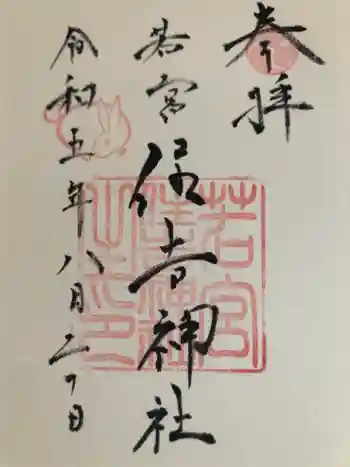 奉拝
若宮住吉神社
令和五年八月二十日
若宮
住吉神社
之印